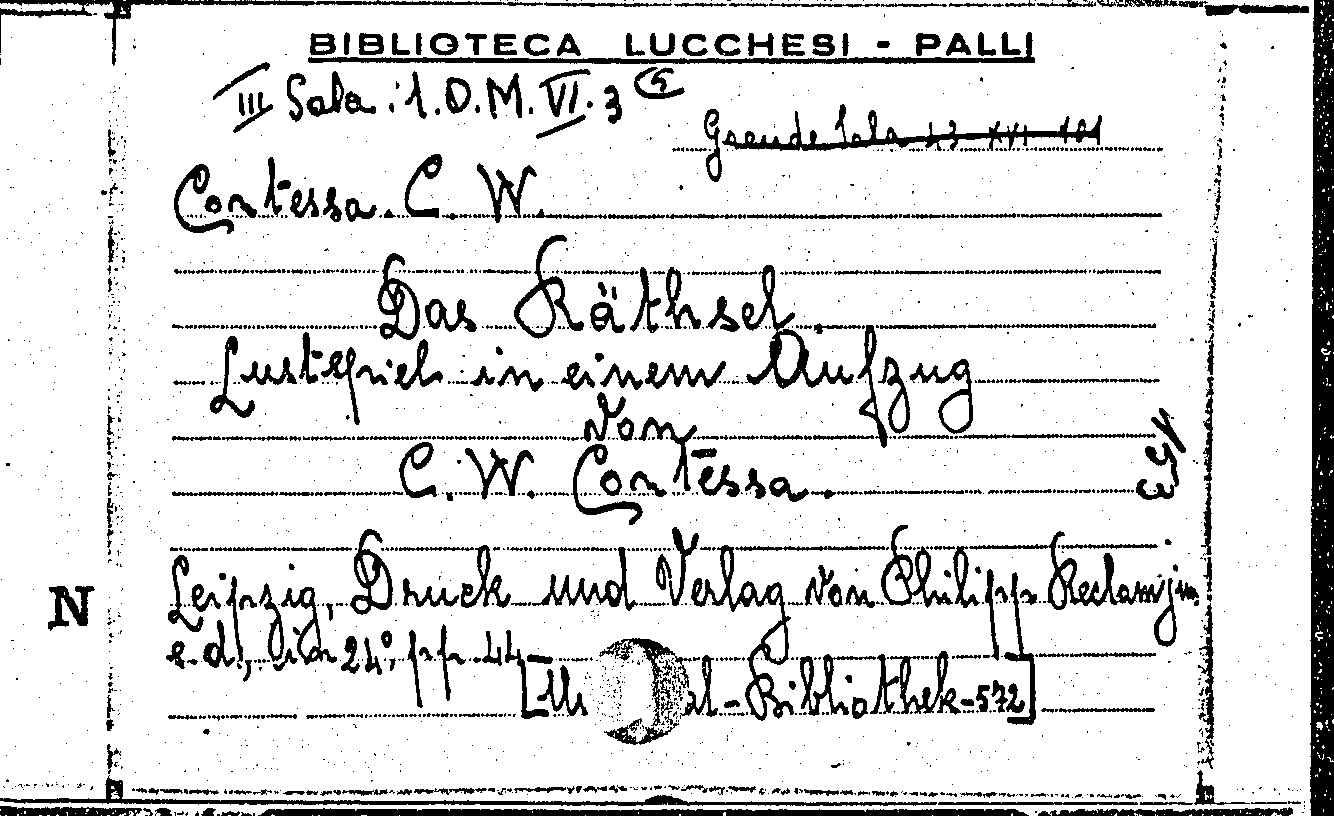 BIBLIOTECA LUCCHESI - PALLI
III Sala. 1. D. M. VI. 3 (5
Grande Sala 23 XVI 101
Contessa. C. W.
Das Räthsel.
Lustspiel in einem Aufzug
von
C. W. Contessa.
Leipzig, Druck und Verlag von Philipp Reclam jun.
s. d., in 24°, pp. 44
al-Bibliothek-572]
N